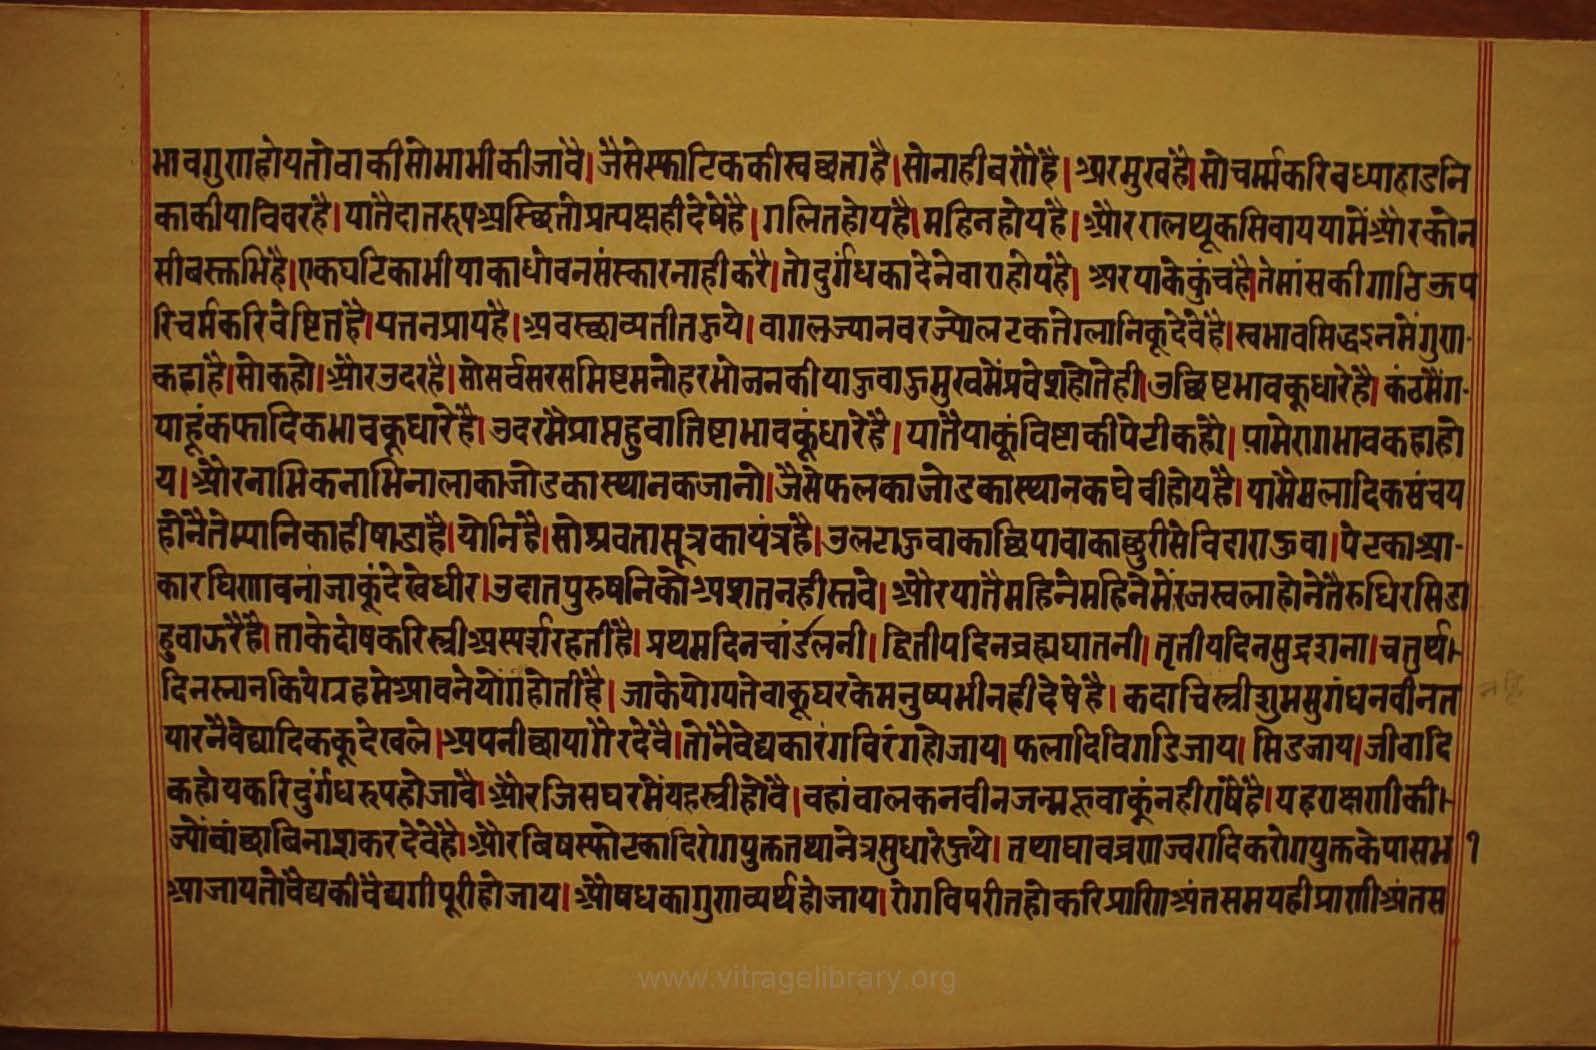 भावगुणहोयतोवाकीसोभाभीकीजावै। जैसेस्फाटिककीस्वच्छताहै।सोनाहीबणैंहै।अरमुखहै।सोचर्म्मकरिबध्याहाडनि
काकीयाविवरहै।यातैदातरुपअस्थितोप्रत्यक्षहीदेषेहै।गलितहोयहै।महिनहोयहै।औररालथूकसिवाययामेंऔरकोन
सीबस्तभिहै।एकघटिकाभीयाकाधोवनसंस्कारनाहीकरै।तोदुर्गंधकादेनेवाराहोयहै। अरयाकेकुंचहै।तेमांसकीगाठिऊप
रिचर्मकरिवेष्टितहै।पत्तनप्रायहै।अवस्छाव्यतीतऊये।वागलज्यानवरज्योलटकतेगलानिकूदेवेहै।स्वभावसिद्धइनमेंगुण-
कहाहै।सोकहो।औरउदरहै।सोसर्वसरसमिष्टमनोहरभोजनकीयाऊवाऊमुखमेंप्रवेशहोतेही।उछिष्टभावकूधारेहै।कंठमैंग-
याहूंकफादिकभावकूधारेहै।उदरमैप्राप्तहुवातिष्टाभावकूंधारेहै।यातैयाकूंविष्टाकीपेटीकहौ।यामेरागभावकहाहो
य।औरनाभिकनाभिनालाकाजोडकास्थानकजानो।जैसेफलकाजोडकास्थानकघेवीहोयहै।यामैमलादिकसंचय
होनैतेम्यानिकाहीषाडाहै।योनिहै।सोश्रवतासूत्रकायंत्रहै।उलटाऊवाकाछिपावाकाछुरीसेविदाराऊवा।पेटकाआ-
कारघिणावनांजाकूंदेखेधीर।उदातपुरुषनिकोअशतनहीस्तवे।औरयातैमहिनेमहिनेमेंरजस्वलाहोनेतैरुधिरसिडा
हुवाऊरैहै।ताकेदोषकरिस्त्रीअस्पर्शरहतीहै।प्रथमदिनचांडलनी।द्वितीयदिनब्रह्मघातनी।तृतीयदिनसुद्रराना।चतुर्थ।-
दिनस्न्यनकियेगृहमेआवनेयोगहोतीहै।जाकेयोग्यतेवाकूघरकेमनुष्यभीनहीदेषेहै।कदाचिस्त्रीशुभसुगंधनवीनत
यारनैवेद्यादिककूदेखले।अपनीछायागैरदेवै।तोनैवेद्यकारंगविरंगहोजाय।फलादिविगडिजाय।सिडजाय।जीवादि
कहोयकरिदुर्गंधरुपहोजावै।औरजिसघरमेंयहस्त्रीहोवै।वहांवालकनवीनजन्महूवाकूंनहीराषैहै।यहराक्षसणीकी।-
ज्योंवांछाबिनाशकरदेवेहै।औरबिषस्फोटकादिरोगयुक्ततथानेत्रसुधारेऊये।तथाघावव्रणज्वरादिकरोगयुक्तकेपासभ १
आजायतोवैद्यकीवैद्यगीपूरीहोजाय।औषधकागुणव्यर्थहोजाय।रोगविपरीतहोकरिप्राणिअंतसमयहीप्राणीअंतस
www.vitragelibrary.org